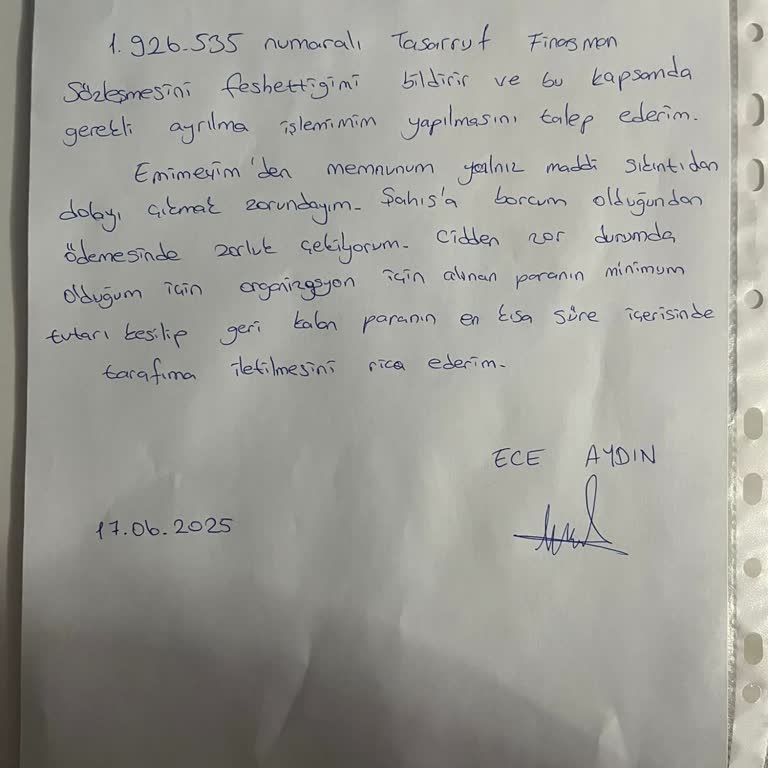 1.926.535 numaralı Tasarruf Finasman
Sözleşmesini feshettiğimi bildirir ve bu kapsamda
gerekli ayrılma işlemimim yapılmasını talep ederim.
Emimeyim'den memnunum yalnız maddi sıkıntıdan
dolayı çıkmak zorundayım. Şahıs'a borcum olduğundan
ödemesinde zorluk çekiyorum. Cidden zor durumda
olduğum için organizasyon için alınan paranın minimum
tutarı kesilip geri kalan paranın en kısa süre içerisinde
tarafıma iletilmesini rica ederim.
ECE AYDIN
17.06.2025